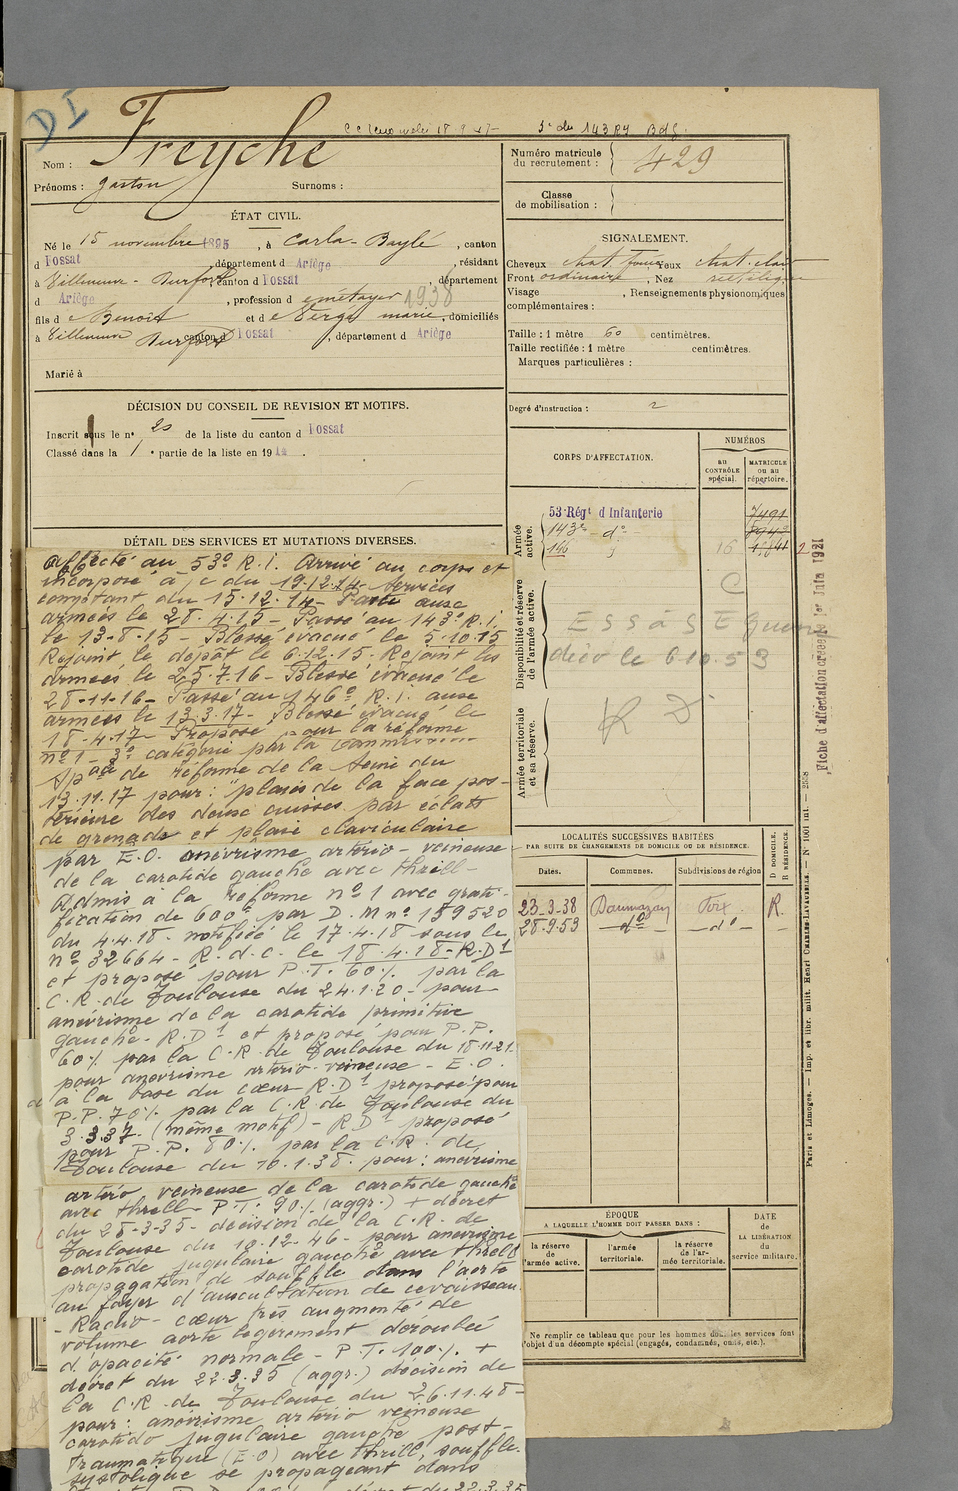 DI
Freyche
5e du 143 RI
Nom :
Prénoms : gaston Surnoms :
ÉTAT CIVIL.
Né le 15 novembre 1895, à Carla-Bayle, canton
d Fossat, département d Ariège, résidant
à Villeneuve-Durfort, canton d Fossat, département
d Ariège, profession d e métayer 1938
fils d e Benoit et d e Verge marie, domiciliés
à Villeneuve Durfort canton d Fossat, département d Ariège
Marié à
DÉCISION DU CONSEIL DE REVISION ET MOTIFS.
Inscrit sous le n° 20 de la liste du canton d Fossat
Classé dans la 1e partie de la liste en 19
DÉTAIL DES SERVICES ET MUTATIONS DIVERSES.
Affecté au 53e R.I. Arrivé au corps et
incorporé à /c du 19.12.14 - Services
comptant du 15.12.14 - Parti aux
armées le 28.4.15 - Passé au 143e R.I.
le 13-8-15 - Blessé évacué le 5.10.15
Rejoint le dépôt le 6.12.15. Rejoint les
armées le 25.7.16 - Blessé évacué le
28-11-16 - Passé au 146e R.I. aux
armées le 13.3.17 - Blessé, évacué le
18-4-17 - Proposé pour la réforme
n°1 - 3e catégorie par la commission
Spale de réforme de la Seine du
13.11.17 pour : "plaies de la face pos-
térieure des deux cuisses par éclats
de grenade et plaie claviculaire
par E.O. anévrisme artério-veineuse
de la carotide gauche avec thrill -
Admis à la Réforme n°1 avec grati-
fication de 600f par D.M n° 159520
du 4.4.18 - notifiée le 17-4-18 sous le
n° 32664 - R.d.C. le 18-4-18 - R.D1
et proposé pour P.T. 60% par la
C.R. de Toulouse du 24.1.20 - pour
anévrisme de la carotide primitive
gauche - R.D1 et proposé pour P.P.
60% par la C.R. de Toulouse du 18-11-21
pour anévrisme artério-veineuse - E.O.
à la base du cœur - R.D1 proposé pour
P.P. 70% par la C.R. de Toulouse du
3.3.37. (même motif) - R.D1 proposé
pour P.P. 80% par la C.R. de
Toulouse du 10.1.38. pour : anévrisme
artério veineuse de la carotide gauche
avec thrill - P.T. 90% (aggr.) + décret
du 28-3-35 - décision de la C.R. de
Toulouse du 10.12.46 - pour anévrisme
carotide jugulaire gauche avec thrill
propagation de souffle dans l'aorte
au foyer d'auscultation de ce vaisseau.
- Radio - cœur très augmenté de
volume aorte légèrement déroulée
d'opacité normale - P.T. 100% +
décret du 22.3.35 (aggr.) décision de
la C.R. de Toulouse du 26.11.48 -
pour : anévrisme artério veineuse
carotido jugulaire gauche post-
traumatique (E.O) avec thrill, souffle
systolique se propageant dans
Numéro matricule du recrutement : 429
Classe de mobilisation :
SIGNALEMENT.
Cheveux chat. foncé, Yeux chat. clair
Front ordinaire, Nez rectilign
Visage , Renseignements physionomiques
complémentaires :
Taille : 1 mètre 60 centimètres.
Taille rectifiée : 1 mètre centimètres.
Marques particulières :
Degré d'instruction : 2
CORPS D'AFFECTATION.
NUMÉROS
au CONTRÔLE spécial.
MATRICULE ou au répertoire.
Armée active.
53e Régt d'Infanterie 7491
143e - do -
146
16
Disponibilité et réserve de l'armée active.
C
déév le 6.10.53
Armée territoriale et sa réserve.
Fiche d'affectation créée le 1er Juin 1921
LOCALITÉS SUCCESSIVES HABITÉES
PAR SUITE DE CHANGEMENTS DE DOMICILE OU DE RÉSIDENCE.
D DOMICILE. R RÉSIDENCE.
Dates. Communes. Subdivisions de région
23-3-38 Daumazan Foix R.
28-9-53 - do - - do - -
ÉPOQUE
A LAQUELLE L'HOMME DOIT PASSER DANS :
la réserve de l'armée active.
l'armée territoriale.
la réserve de l'armée territoriale.
DATE de LA LIBÉRATION du service militaire.
Ne remplir ce tableau que pour les hommes dont les services font
l'objet d'un décompte spécial (engagés, condamnés, omis, etc.).
Paris et Limoges. — Imp. et libr. milit. Henri CHARLES-LAVAUZELLE. — N° 1001 int. — 2538